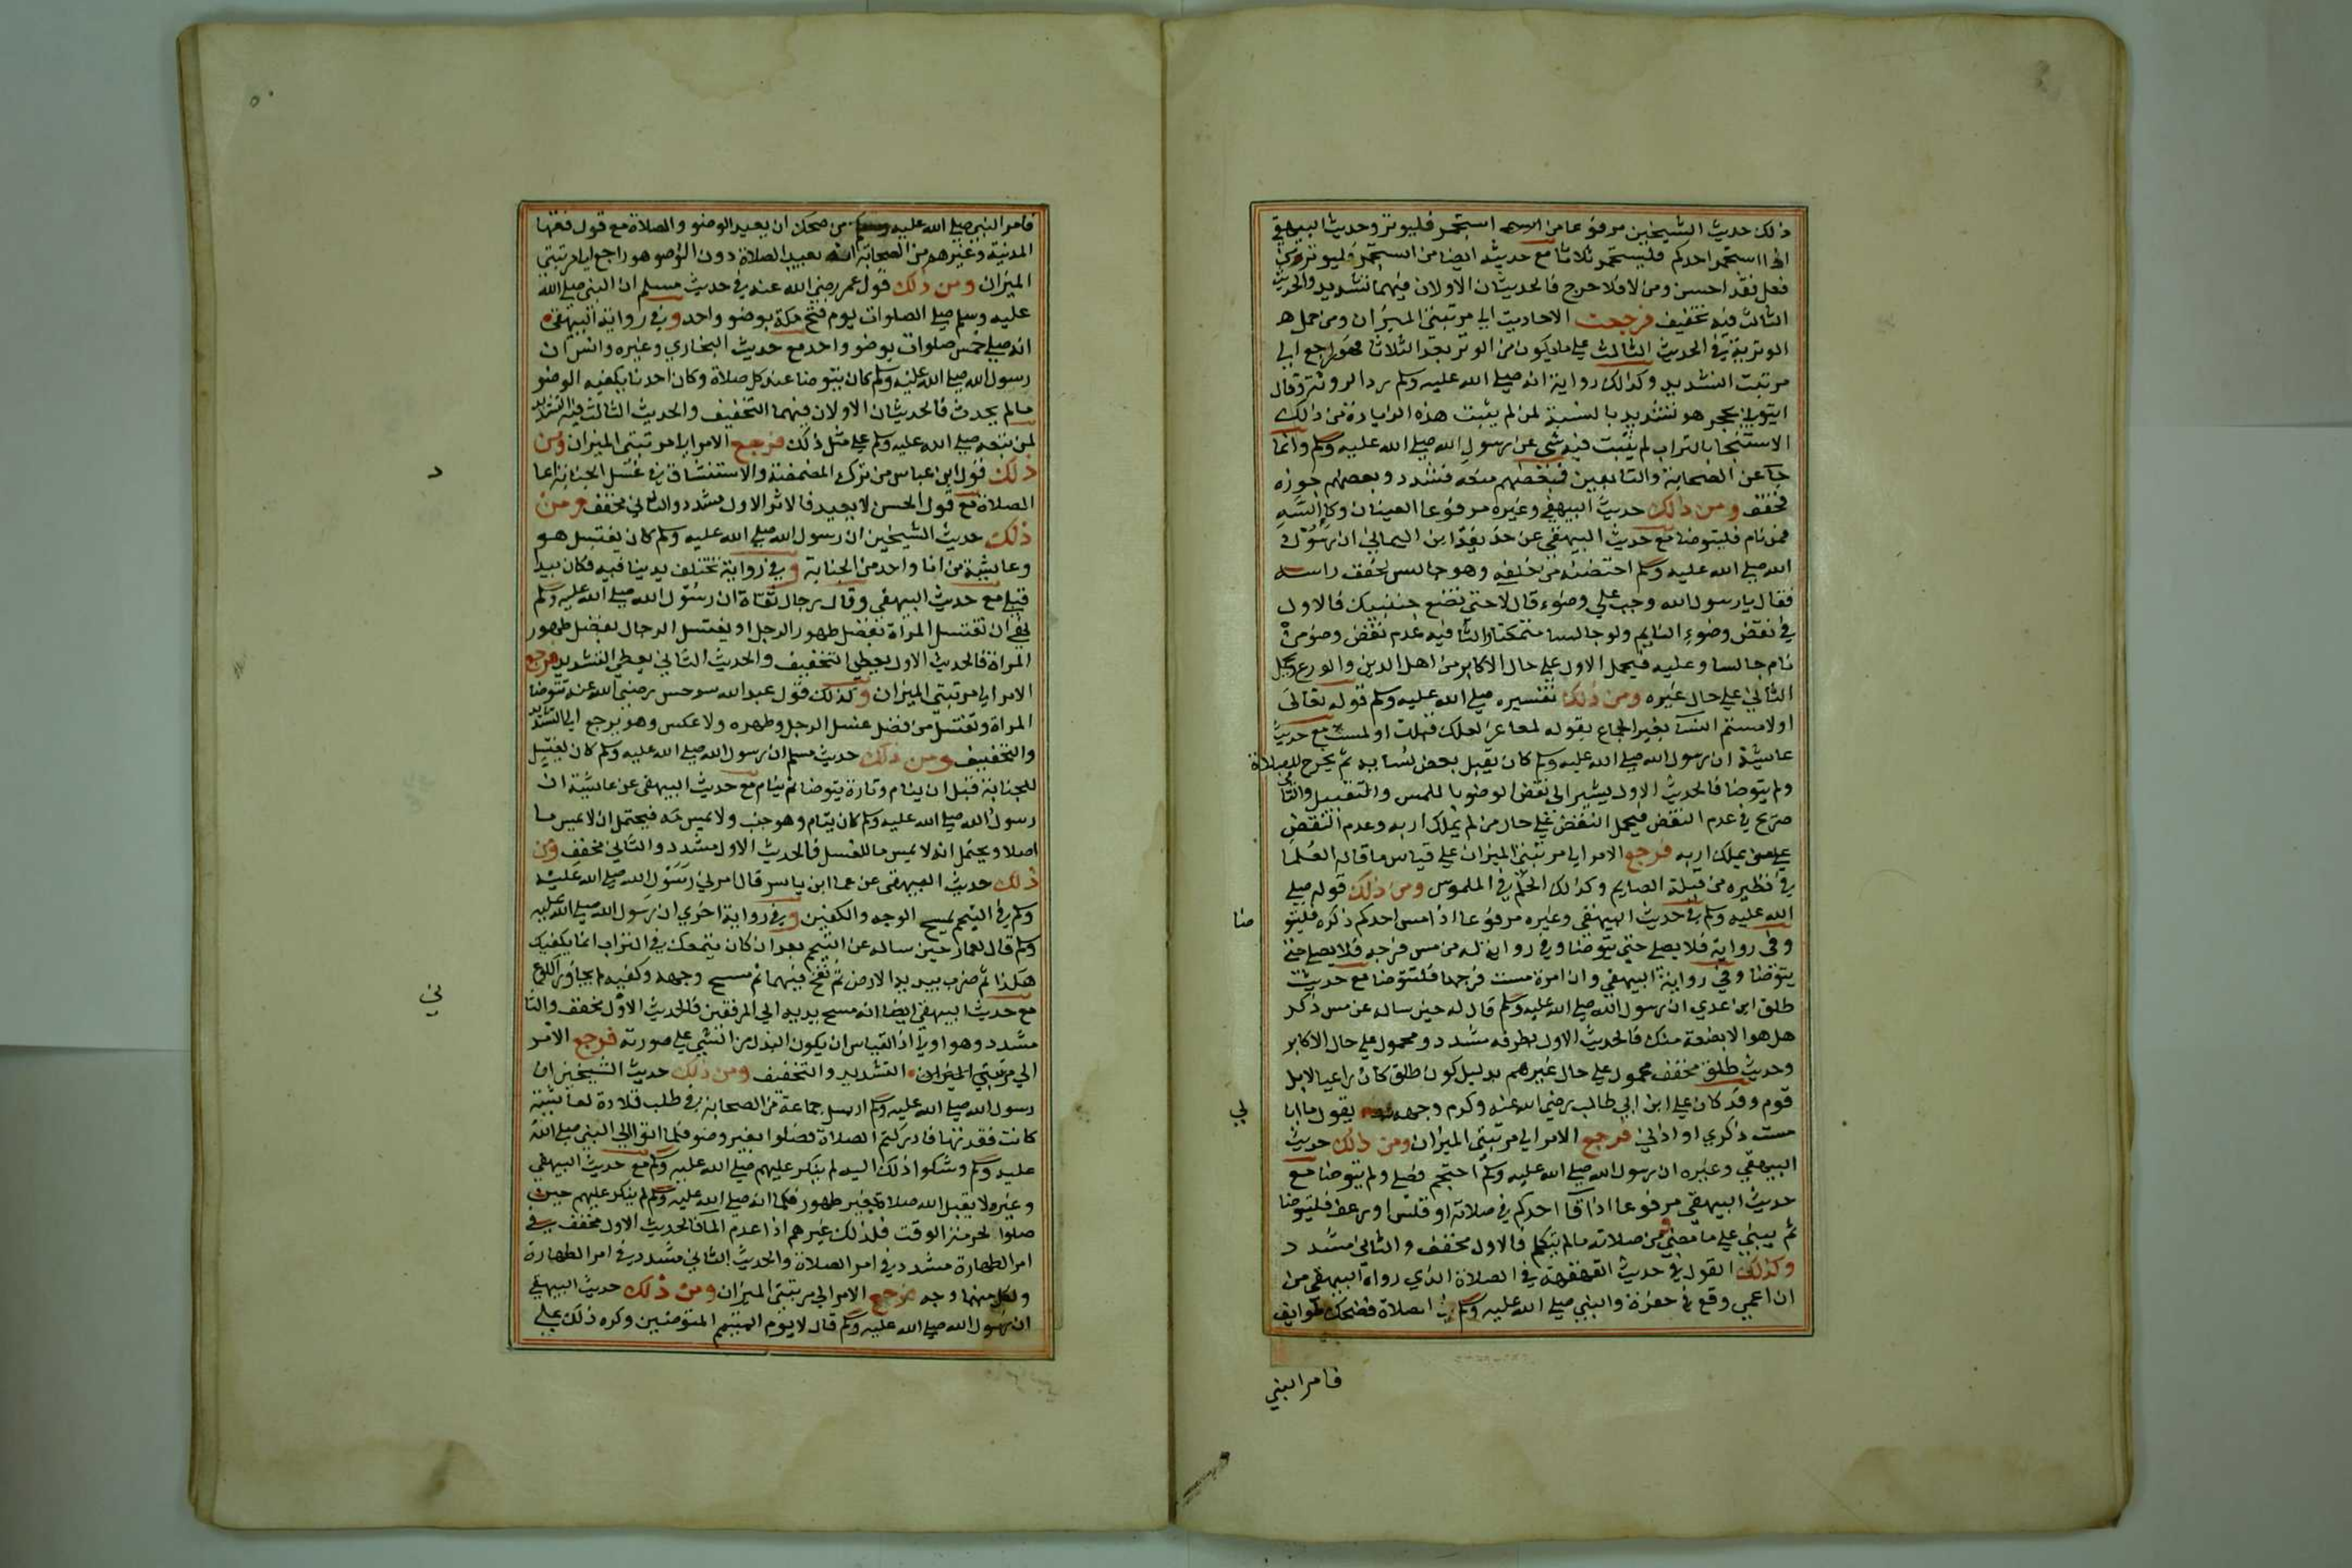 ذلك حديث الشيخين مرفوعا من استجمر فليوتر وحديث البيهقي
اذا استجمر احدكم فليستجمر ثلاثا مع حديثه ايضا من استجمر فليوتر من
فعل فقد احسن ومن لا فلا حرج فالحديثان الاولان فيهما تشديد والحديث
الثالث فيه تخفيف فرجعت الاحاديث الي مرتبتي الميزان ومن حمل
الوترية في الحديث الثالث علي ما يكون من الوتر بعد الثلاثا فهو راجع الي
مرتبت التشديد وكذلك رواية انه صلي الله عليه وسلم رد الروثة وقال
ايتوني بحجر هو تشديد بالنسبة لمن لم يثبت هذه الزيادة من ذلك
الاستنجا بالتراب لم يثبت فيه شي عن رسول الله صلي الله عليه وسلم وانما
جا عن الصحابة والتابعين فبعضهم منعه فشدد وبعضهم جوزه
فخفف ومن ذلك حديث البيهقي وغيره مرفوعا العينان وكا السه
فمن نام فليتوضا مع حديث البيهقي عن حذيفة ابن اليماني ان رسول
الله صلي الله عليه وسلم احتضنه من خلفه وهو جالس تخفق راسه
فقال يا رسول الله وجب علي وضوء قال لا حتي تضع جنبيك فالاول
في نقض وضوء النايم ولو جالسا متمكنا والثا فيه عدم نقض وضو من
نام جالسا وعليه فيحمل الاول علي حال الاكابر من اهل الدين والورع ويحمل
الثاني علي حال غيره ومن ذلك تفسيره صلي الله عليه وسلم قوله تعالي
اولامستم النسا بغير الجماع بقوله لمعاعز لعلك قبلت او لمست مع حديث
عايشة ان رسول الله صلي الله عليه وسلم كان يقبل بعض نسايه ثم يخرج للصلاة
ولم يتوضا فالحديث الاول يشير الي نقض الوضو باللمس والتقبيل والثاني
صريح في عدم النقض فيحمل النقض علي حال من لم يملك اربه وعدم النقض
علي من يملك اربه فرجع الامر الي مرتبتي الميزان علي قياس ما قاله العلما
في نظيره من قبلة الصايم وكذلك الحكم في الملموس ومن ذلك قوله صلي
الله عليه وسلم في حديث البيهقي وغيره مرفوعا اذا مس احدكم ذكره فليتو
ضا
وفي رواية فلا يصلي حتي يتوضا وفي رواية له من مس فرجه فلا يصلي حتي
يتوضا وفي رواية البيهقي وان امرة مست فرجها فلتتوضا مع حديث
طلق ابن عدي ان رسول الله صلي الله عليه وسلم قال له حين ساله عن مس ذكر
هل هو الا بضعة منك فالحديث الاول بطرفه مشدد ومحمول علي حال الاكابر
وحديث طلق مخفف محمول علي حال غيرهم بدليل كون طلق كان راعيا لابل
قوم وقد كان علي ابن ابي طالب رضي الله عنه وكرم وجهه يقول ما ابا
لي
مست ذكري او اذني فرجع الامر الي مرتبتي الميزان ومن ذلك حديث
البيهقي وغيره ان رسول الله صلي الله عليه وسلم احتجم فصلي ولم يتوضا مع
حديث البيهقي مرفوعا اذا قا احدكم في صلاته او قلس او رعف فليتوضا
ثم يبني علي ما مضي من صلاته ما لم يتكلم فالاول مخفف والثاني مشدد
وكذلك القول في حديث القهقهة في الصلاة الذي رواه البيهقي من
ان اعمي وقع في حفرة والنبي صلي الله عليه وسلم في الصلاة فضحك طوايف
فامر النبي
فامر النبي صلي الله عليه وسلم من ضحك ان يعيد الوضو والصلاة مع قول فقها
المدنية وغيرهم من الصحابة انه يعيد الصلاة دون الوضو هو راجع الي مرتبتي
الميزان ومن ذلك قول عمر رضي الله عنه في حديث مسلم ان النبي صلي الله
عليه وسلم صلي الصلوات يوم فتح مكة بوضو واحد وفي رواية البيهقي
انه صلي خمس صلوات بوضو واحد مع حديث البخاري وغيره وانس ان
رسول الله صلي الله عليه وسلم كان يتوضا عند كل صلاة وكان احدنا يكفيه الوضو
مالم يحدث فالحديثان الاولان فيهما التخفيف والحديث الثالث فيه التشديد
لمن تبعه صلي الله عليه وسلم علي مثل ذلك فرجع الامر الي مرتبتي الميزان ومن
ذلك قول ابن عباس من ترك المضمضة والاستنشاق في غسل الجنابة اعا
د
الصلاة مع قول الحسن لا يعيد فالاثر الاول مشدد والثاني مخفف ومن
ذلك حديث الشيخين ان رسول الله صلي الله عليه وسلم كان يغتسل هو
وعايشة من انا واحد من الجنابة وفي رواية تختلف يدينا فيه فكان يبدا
قبلي مع حديث البيهقي وقال رجال ثقاة ان رسول الله صلي الله عليه وسلم
نهي ان تغتسل المراة بفضل طهور الرجل او يغتسل الرجال بفضل طهور
المراة فالحديث الاول يعطي التخفيف والحديث الثاني يعطي التشديد فرجع
الامر الي مرتبتي الميزان وكذلك قول عبد الله سرحس رضي الله عنه تتوضا
المراة وتغتسل من فضل غسل الرجل وطهره ولا عكس وهو يرجع الي التشديد
والتخفيف ومن ذلك حديث مسلم ان رسول الله صلي الله عليه وسلم كان يغتسل
للجنابة قبل ان ينام وتارة يتوضا ثم ينام مع حديث البيهقي عن عايشة ان
رسول الله صلي الله عليه وسلم كان ينام وهو جنب ولا يمس مه فيحتمل ان لا يمس ما
اصلا ويحتمل انه لا يمس ما للغسل فالحديث الاول مشدد والثاني مخفف ومن
ذلك حديث البيهقي عن عما ابن ياسر قال امرني رسول الله صلي الله عليه
وسلم في التيمم بمسح الوجه والكفين وفي رواية اخري ان رسول الله صلي الله عليه
وسلم قال لعمار حين ساله عن التيمم بعد ان كان يتمعك في التراب انما يكفيك
هكذا ثم ضرب بيديه الارض ثم نفخ فيهما ثم مسح وجهه وكفيه لم يجاوز الكوع
مع حديث البيهقي ايضا انه مسح بيديه الي المرفقين فالحديث الاول مخفف والثا
ني
مشدد وهو اولي اذ القياس ان يكون البدل من الشي علي صورته فرجع الامر
الي مرتبتي الميزان التشديد والتخفيف ومن ذلك حديث الشيخين ان
رسول الله صلي الله عليه وسلم ارسل جماعة من الصحابة في طلب قلادة لعايشة
كانت فقدتها فادركتم الصلاة فصلوا بغير وضو فلما اتوا الي النبي صلي الله
عليه وسلم وشكوا ذلك اليه لم ينكر عليهم صلي الله عليه وسلم مع حديث البيهقي
وغيره لا يقبل الله صلاة بغير طهور فلما انه صلي الله عليه وسلم لم ينكر عليهم حين
صلوا لحرمنز الوقت فلذلك غيرهم اذا عدم الما فالحديث الاول مخفف في
امر الطهارة مشدد في امر الصلاة والحديث الثاني مشدد في امر الطهارة
ولكل منهما وجه فرجع الامر الي مرتبتي الميزان ومن ذلك حديث البيهقي
ان رسول الله صلي الله عليه وسلم قال لا يوم المتيمم المتوضئين وكره ذلك علي